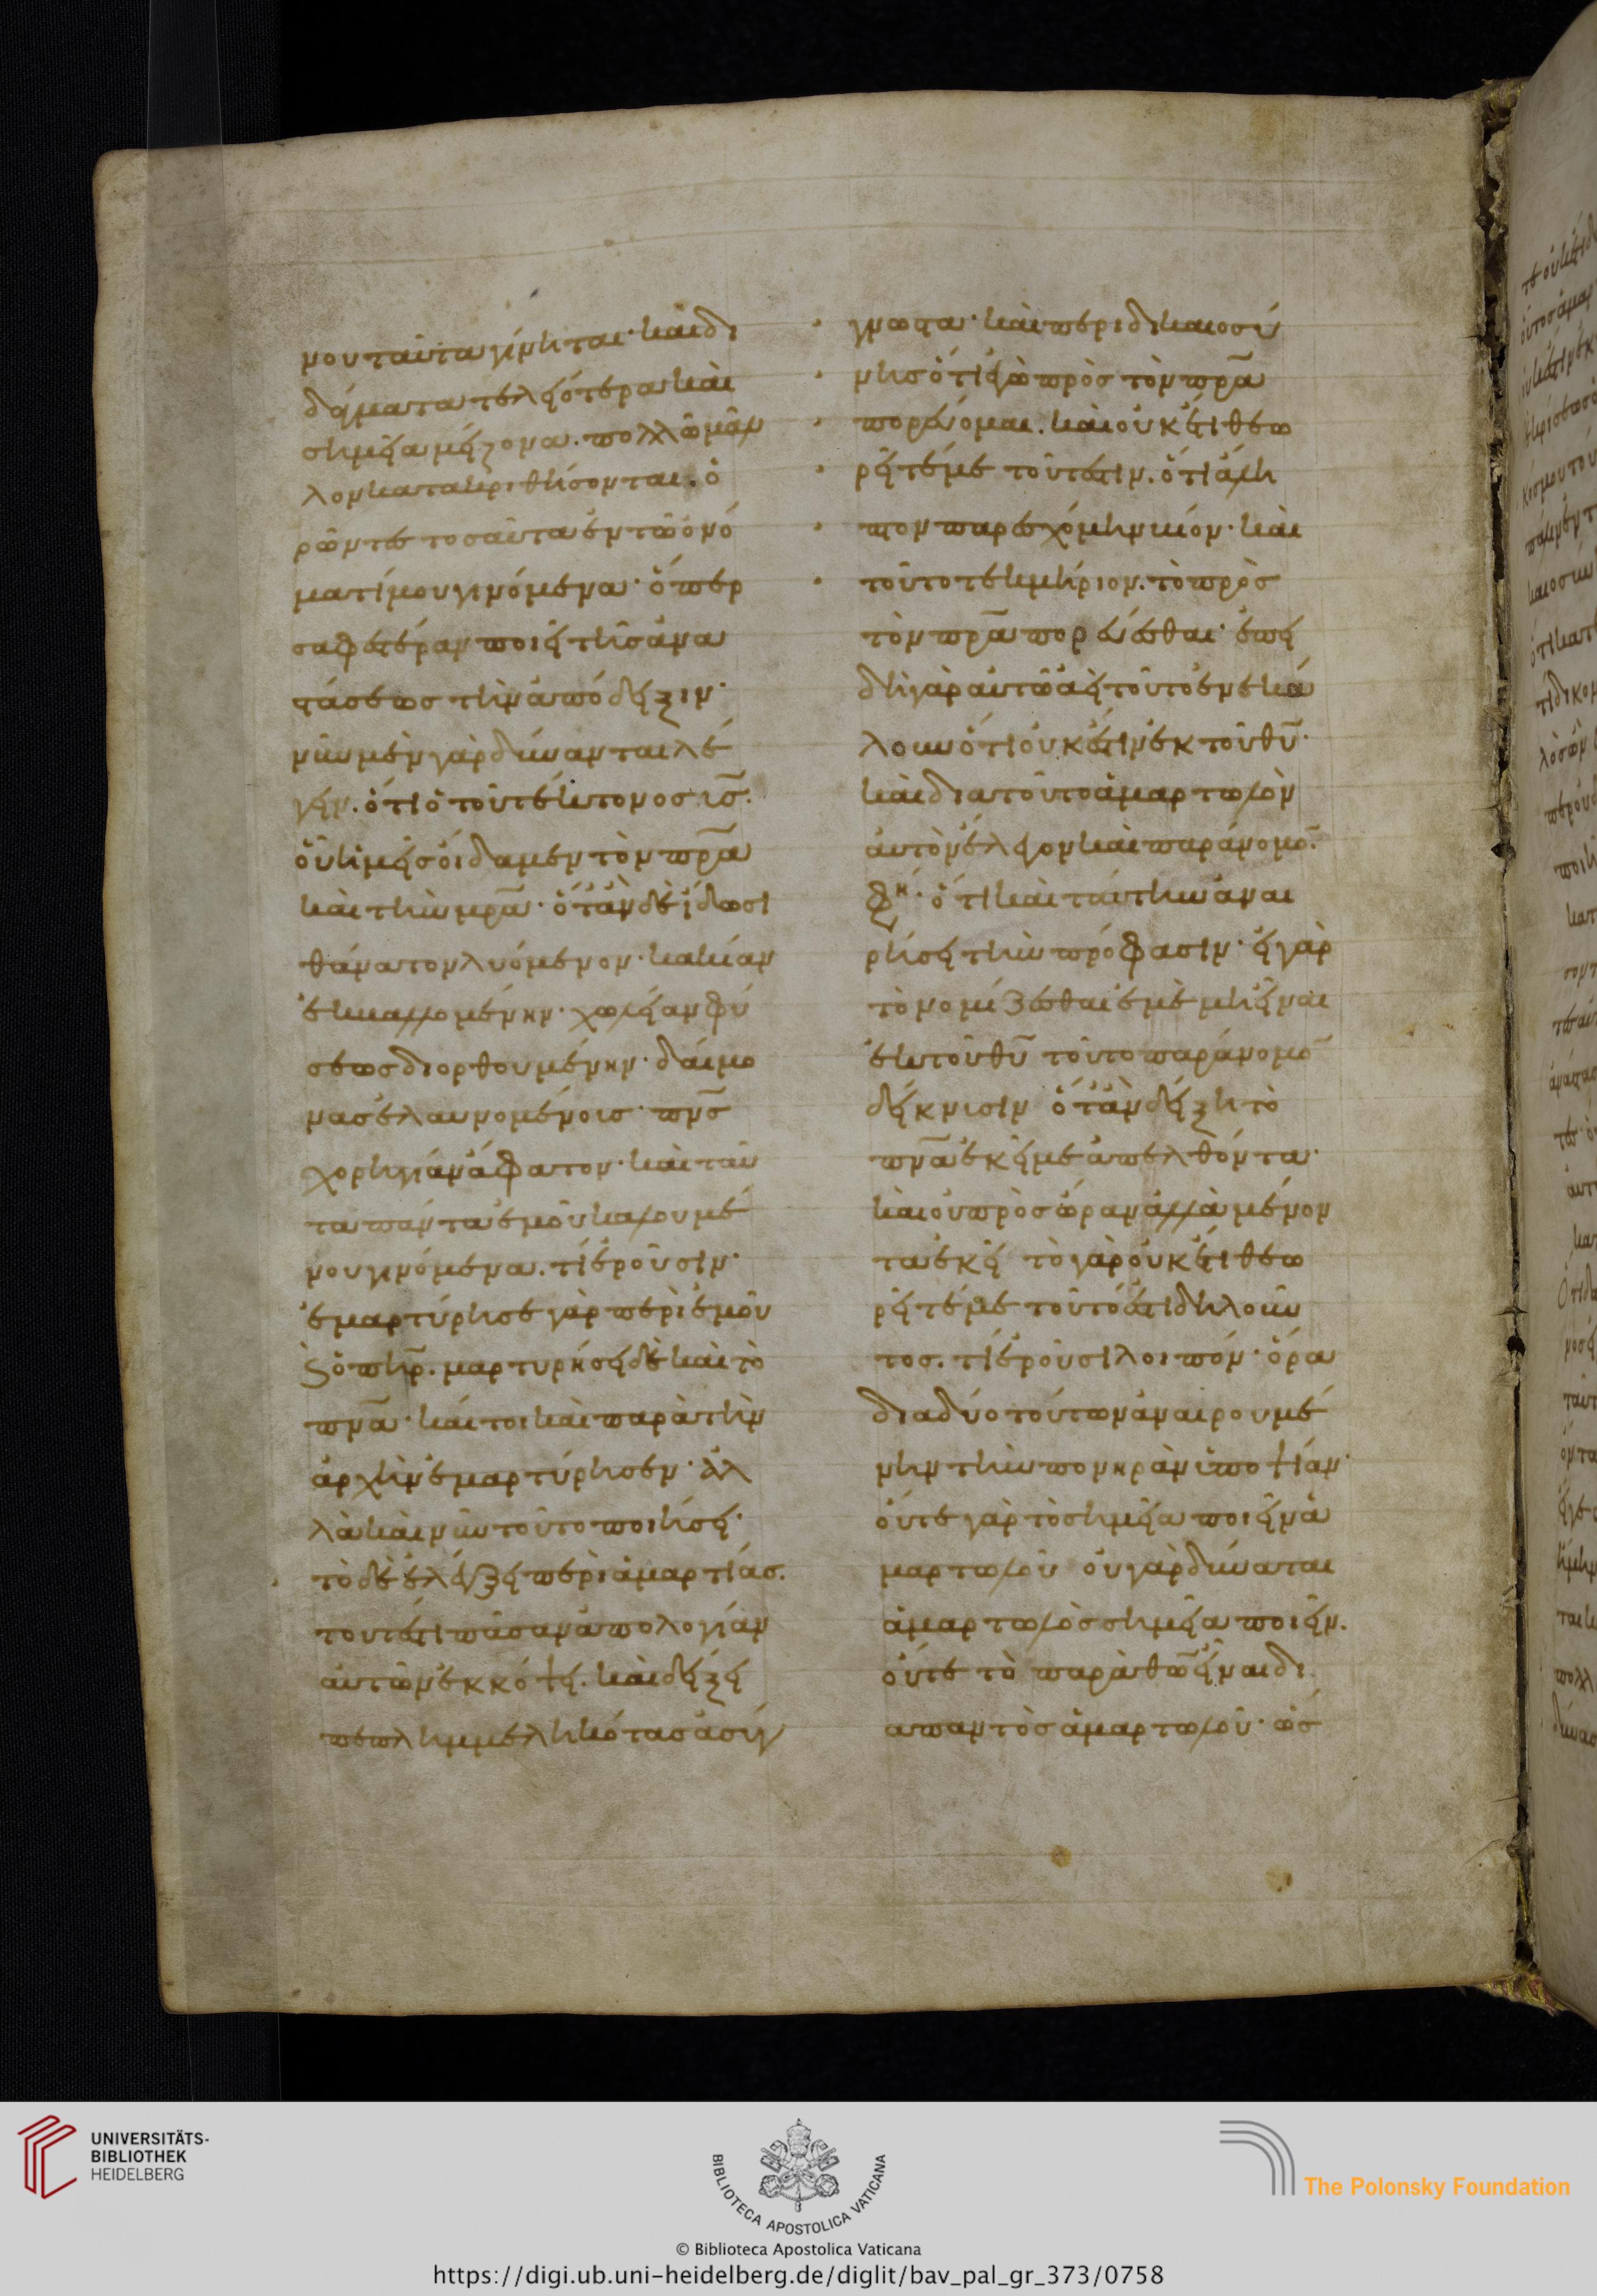 μου ταῦτα γίνηται· καὶ δι
δάγματα τελειότερα καὶ
σημεῖα μείζονα. πολλῶ μᾶλ
λον κατακριθήσονται. ὁ
ρῶντες τοσαῦτα ἐν τῶ ὀνό
ματί μου γινόμενα· ὅπερ
σαφεστέραν ποιεῖ τῆς ἀνα
στάσεως τὴν ἀπόδειξιν·
νῦν μὲν γὰρ δύνανται λέ
γειν. ὅτι ὁ τοῦ τέκτονος υς̅.
οὗ ἡμεῖς οἴδαμεν τὸν πρ̅α
καὶ τὴν μρ̅α· ὅταν δὲ ἴδωσι
θάνατον λυόμενον· κακίαν
ἐκκαλλομένην· χωλείαν φύ
σεως διορθουμένην· δαίμο
νας ἐλαυνομένοις· πν̅ς
χορηγίαν ἄφατον· καὶ ταῦ
τα πάντα ἐμοῦ καλουμέ
νου γινόμενα. τί ἐροῦσιν·
ἐμαρτύρησε γὰρ περὶ ἐμοῦ
ὁ πηρ̅. μαρτυρήσει δὲ καὶ τὸ
πν̅α· καίτοι καὶ παρὰ τὴν
ἀρχὴν ἐμαρτύρησεν· ἀλ
λὰ καὶ νῦν τοῦτο ποιήσει·
τὸ δὲ ἐλέγξει περὶ ἁμαρτίας.
τουτέστι πᾶσαν ἀπολογίαν
αὐτῶν ἐκκόψει. καὶ δείξει
πεπλημμεληκότας ἀσύγ
γνωστα· καὶ περὶ δικαιοσύ
νης ὅτι ἐγὼ πρὸς τὸν πρ̅α
πορεύομαι. καὶ οὐκέτι θεω
ρεῖτέ με τοῦτέστιν. ὅτι ἄλη
πτον παρεσχόμην βίον· καὶ
τοῦτο τεκμήριον. τὸ πρὸς
τὸν πρ̅α πορεύεσθαι· ἐπει
δὴ γὰρ αὐτῶ ἀεὶ τοῦτο ἐνεκά
λουν ὅτι οὐκ ἔστιν ἐκ τοῦ θυ̅·
καὶ διατοῦτο ἁμαρτωλὸν
αὐτὸν ἔλεγον καὶ παράνομο̅·
φη· ὅτι καὶ ταύτην ἀναι
ρήσει τὴν πρόφασιν· εἰ γὰρ
τὸ νομίζεσθαι ἐμὲ μὴ εἶναι
ἐκ τοῦ θυ̅ τοῦτο παράνομο̅
δείκνυσιν ὅταν δείξη τὸ
πν̅α ἐκεῖ με ἀπελθόντα·
καὶ οὐ πρὸς ὥραν ἀλλὰ μένον
τα ἐκεῖ τὸ γὰρ οὐκέτι θεω
ρεῖτέ με τοῦτό ἐστι δηλοῦν
τος. τί ἐροῦσι λοιπόν· ὅρα
διαδύο τούτων ἀναιρουμέ
νην τὴν πονηρὰν ὑποψίαν·
οὔτε γὰρ τὸ σημεῖα ποιεῖν ἁ
μαρτωλοῦ οὐ γὰρ δύναται
ἁμαρτωλὸς σημεῖα ποιεῖν.
οὔτε τὸ παρὰ θω̅ εἶναι δι
απαντὸς ἁμαρτωλοῦ· ὡς
UNIVERSITÄTS-
BIBLIOTHEK
HEIDELBERG
BIBLIOTECA APOSTOLICA VATICANA
The Polonsky Foundation
© Biblioteca Apostolica Vaticana
https://digi.ub.uni-heidelberg.de/diglit/bav_pal_gr_373/0758